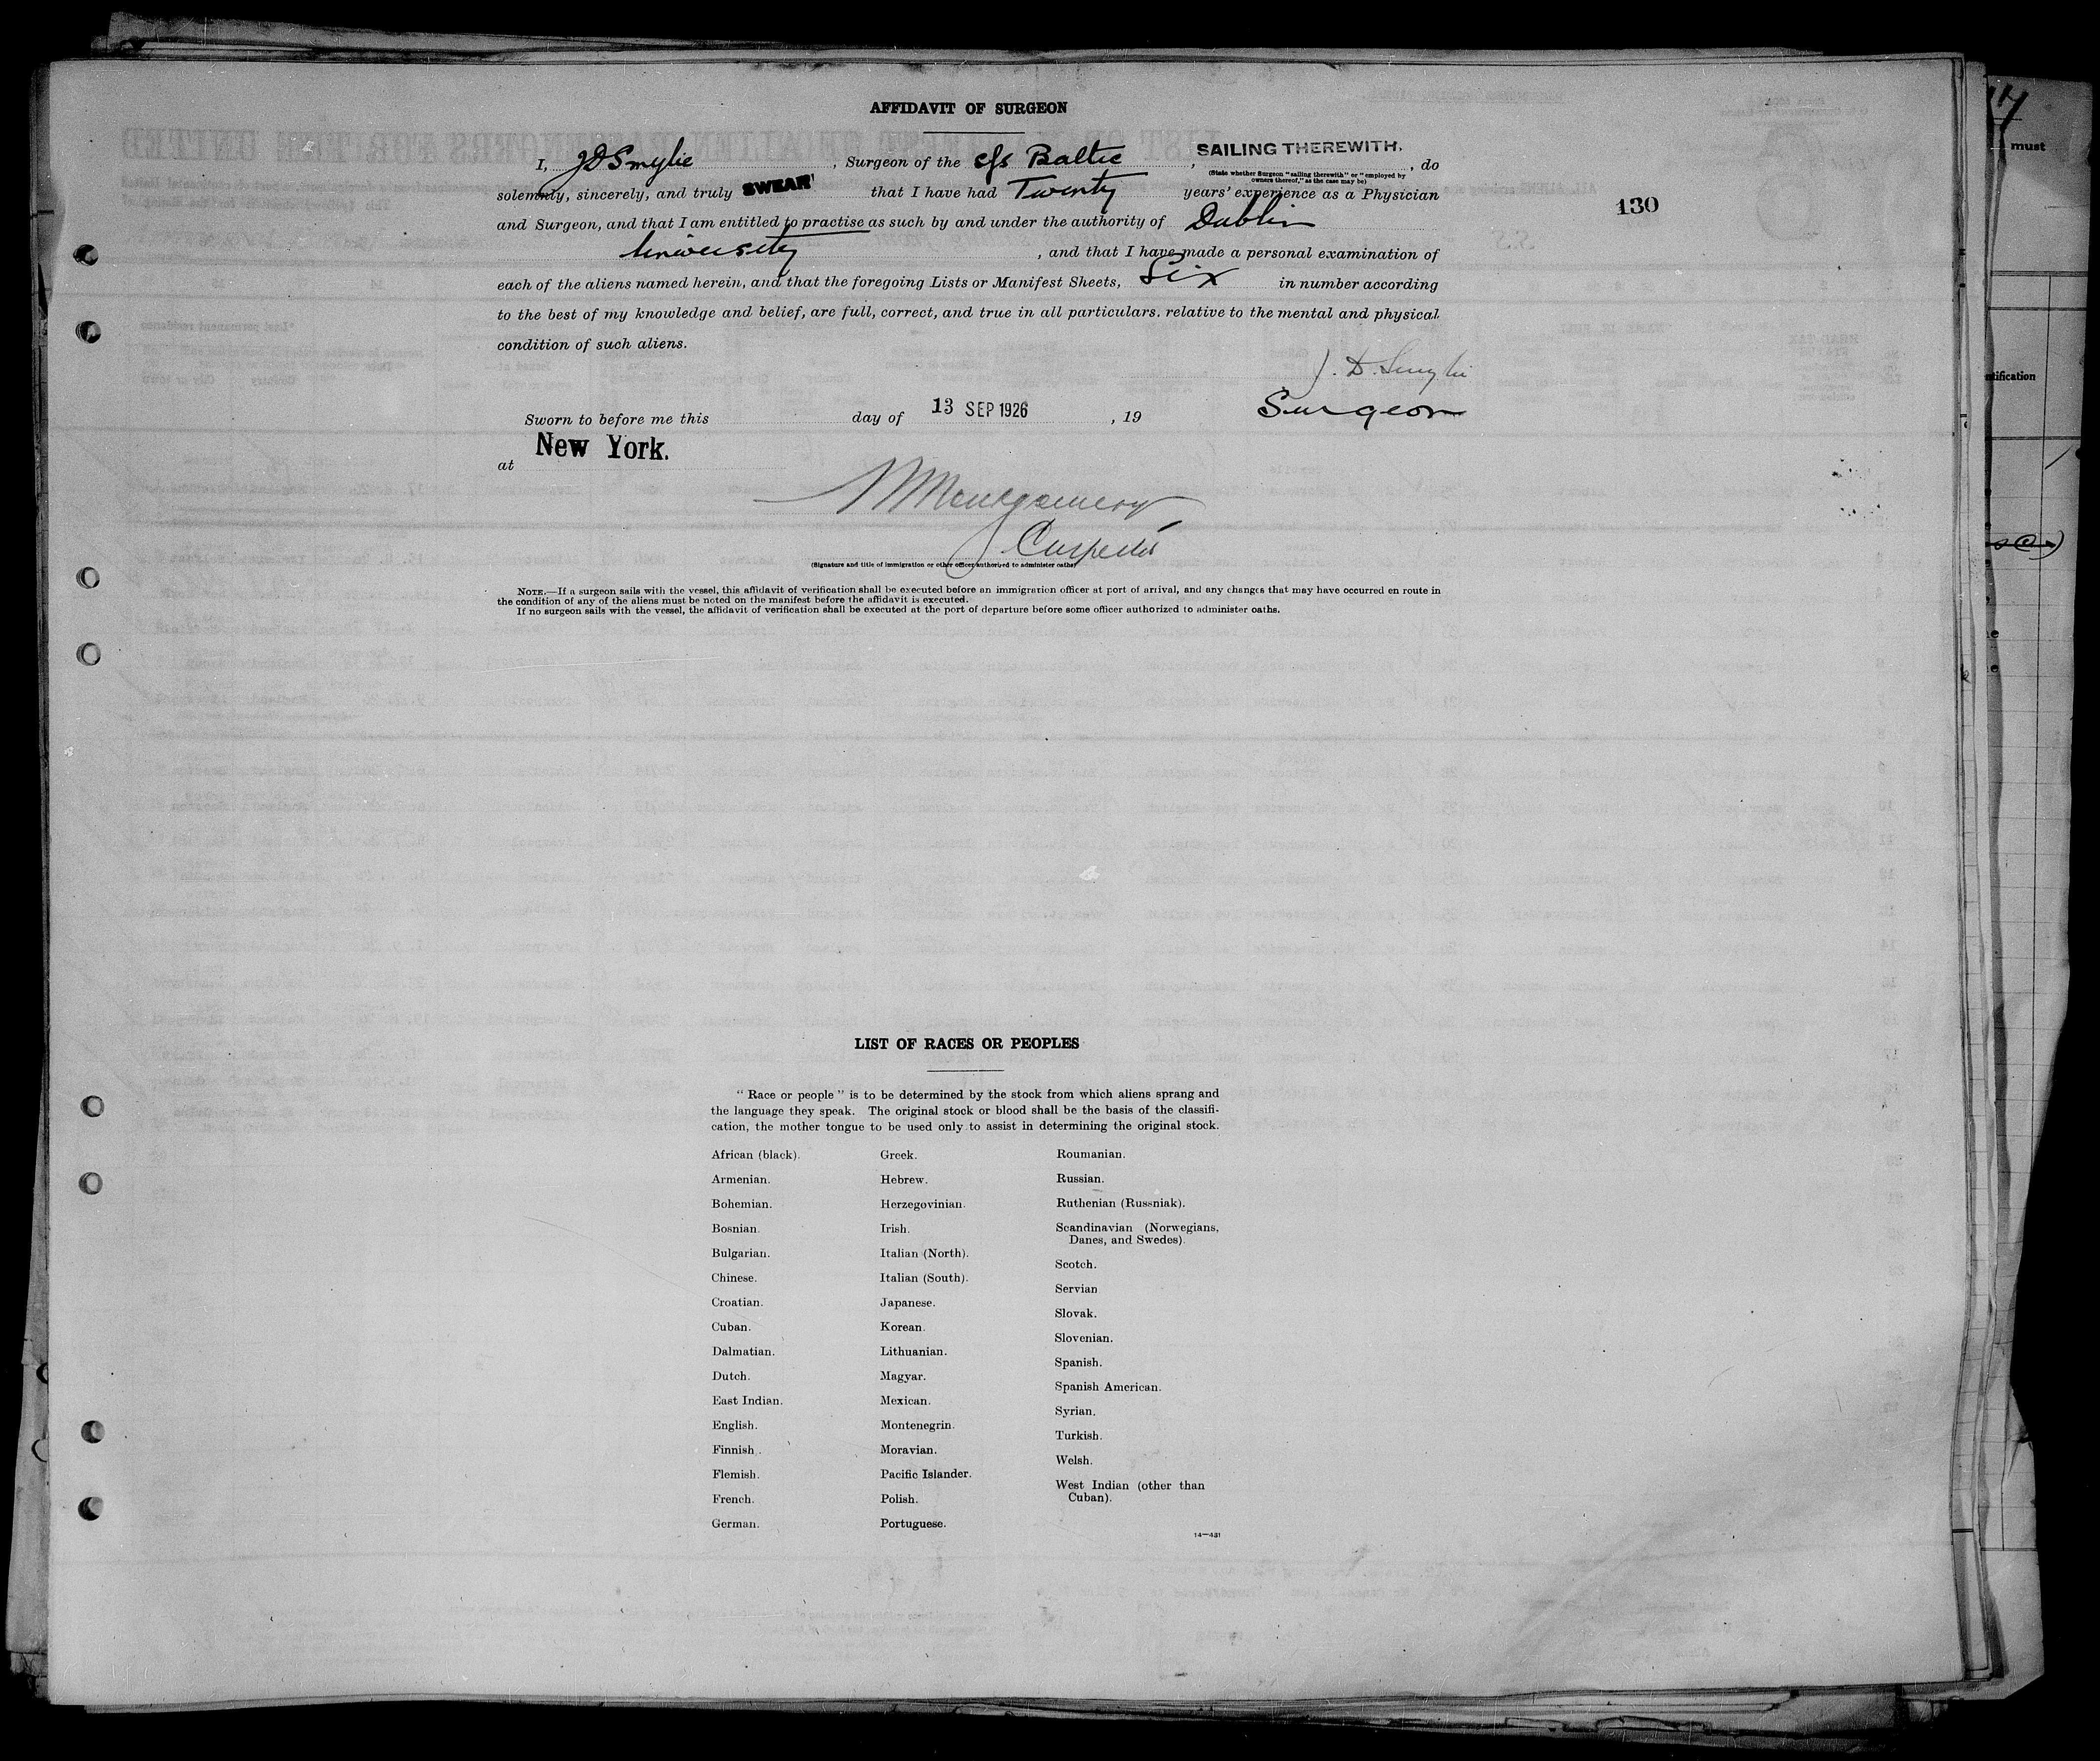 AFFIDAVIT OF SURGEON
I, JD Smylie, Surgeon of the s/s Baltic, SAILING THEREWITH., do
(State whether Surgeon "sailing therewith" or "employed by
owners thereof," as the case may be)
solemnly, sincerely, and truly SWEAR that I have had Twenty years' experience as a Physician
130
and Surgeon, and that I am entitled to practise as such by and under the authority of Dublin
University, and that I have made a personal examination of
each of the aliens named herein, and that the foregoing Lists or Manifest Sheets, Six in number according
to the best of my knowledge and belief, are full, correct, and true in all particulars. relative to the mental and physical
condition of such aliens.
J. D. Smylie
Surgeon
Sworn to before me this day of 13 SEP 1926, 19
at New York.
Montgomery
(Signature and title of immigration or other officer authorized to administer oaths)
NOTE.—If a surgeon sails with the vessel, this affidavit of verification shall be executed before an immigration officer at port of arrival, and any changes that may have occurred en route in
the condition of any of the aliens must be noted on the manifest before the affidavit is executed.
If no surgeon sails with the vessel, the affidavit of verification shall be executed at the port of departure before some officer authorized to administer oaths.
must
tification
LIST OF RACES OR PEOPLES
"Race or people" is to be determined by the stock from which aliens sprang and
the language they speak. The original stock or blood shall be the basis of the classifi-
cation, the mother tongue to be used only to assist in determining the original stock.
African (black).
Armenian.
Bohemian.
Bosnian.
Bulgarian.
Chinese.
Croatian.
Cuban.
Dalmatian.
Dutch.
East Indian.
English.
Finnish.
Flemish.
French.
German.
Greek.
Hebrew.
Herzegovinian.
Irish.
Italian (North).
Italian (South).
Japanese.
Korean.
Lithuanian.
Magyar.
Mexican.
Montenegrin.
Moravian.
Pacific Islander.
Polish.
Portuguese.
Roumanian.
Russian.
Ruthenian (Russniak).
Scandinavian (Norwegians,
Danes, and Swedes).
Scotch.
Servian
Slovak.
Slovenian.
Spanish.
Spanish American.
Syrian.
Turkish.
Welsh.
West Indian (other than
Cuban).
14—431